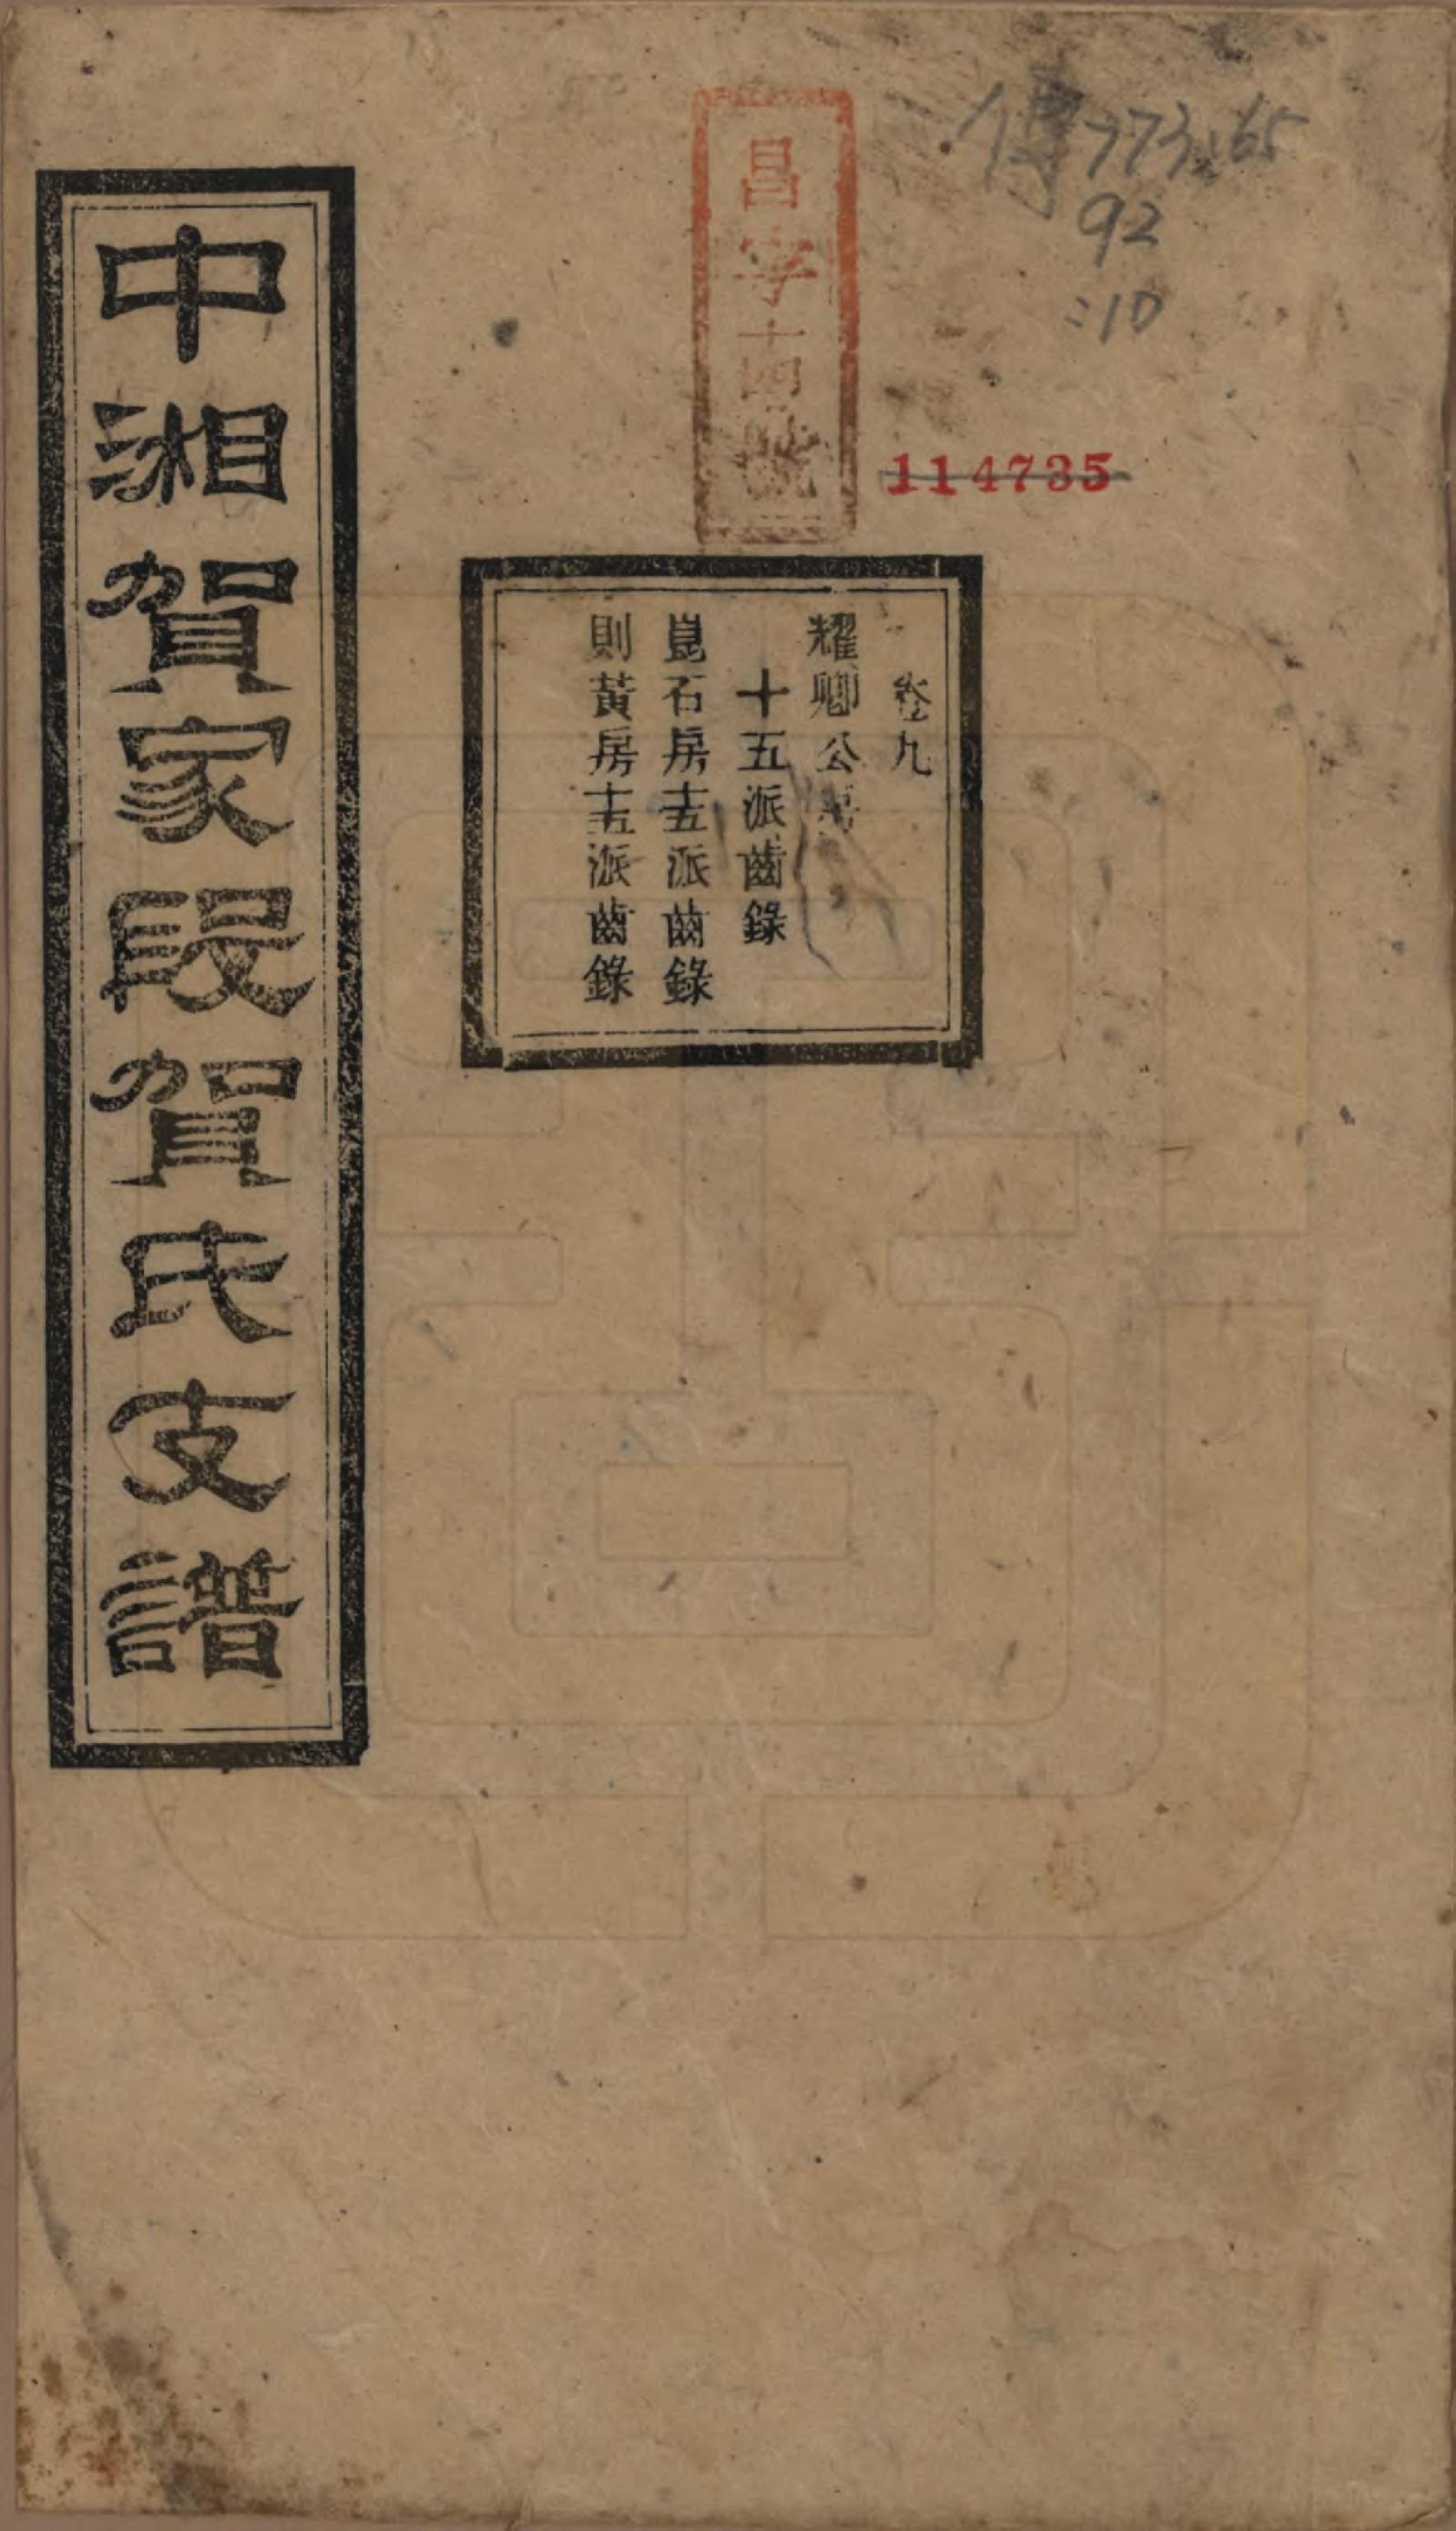 傳773.65
92
:10
昌字十四號
114735
卷九
耀卿公
十五派齒錄
崑石房十五派齒錄
則黃房十五派齒錄
中湘賀家段賀氏支譜